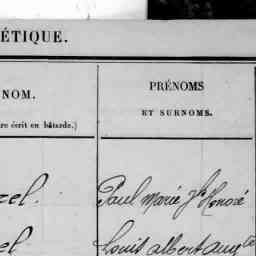 ÉTIQUE.
NOM.
PRÉNOMS
ET SURNOMS.
re écrit en bâtarde.)
zel. Paul Marie Jh Honoré
el Louis albert aug te